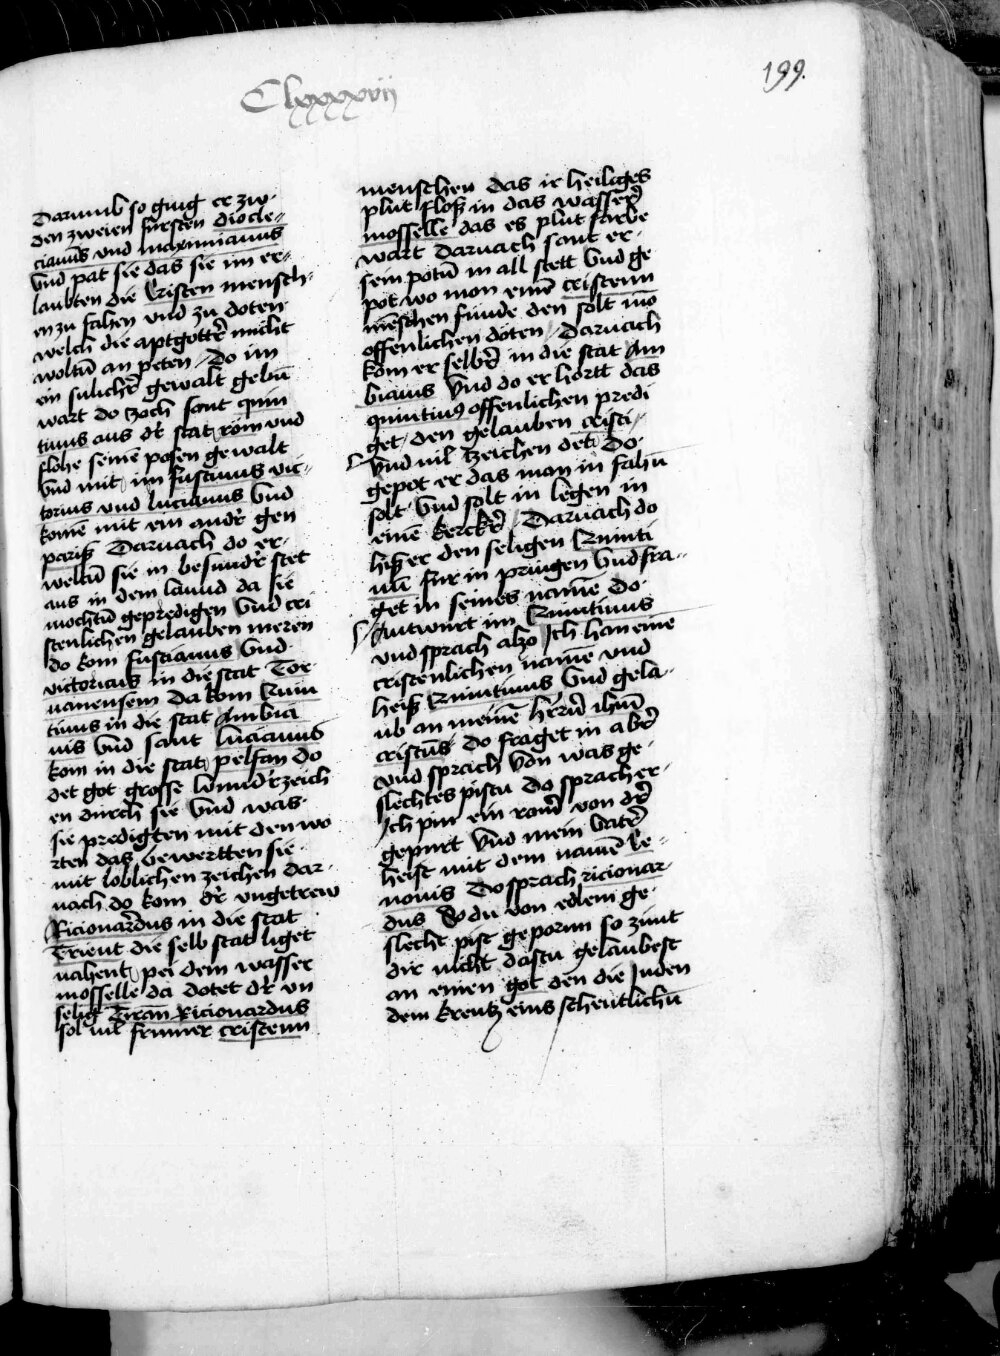 Clxxxxvii
199.
Darumb so ging er zw
den zweien fursten diocle-
cianus und maximianus
Vnd pat sie das sie im er-
laubten die Cristen mensch-
en zu fahen vnd zu doten
welch die aptgottr̄ nicht
woltn̄ an peten / Do im
ein sulichr̄ gewalt gebn̄
wart do zoch sant quin
tinus aus dr̄ stat rom vnd
flohe seinē posen gewalt
Vnd mit im fuscianus vic-
torius vnd lucianus Vnd
komē mit ein andr̄ gen
pariß Darnach do er-
weltn̄ sie in besundr̄ stet
aus in dem lannd da sie
mochtn̄ gepredigen Vnd cri
stenlichen gelauben meren
do kom fuscianus Vnd
victoricus in die stat Tor
uanensem Da kom Quin
tinus in die stat Ambia
nis Vnd sant lucianus
kom in die stat pelfan Do
det got grosse wundr̄zeich
en durch sie Vnd was
sie predigten mit den wo
rten das bewertten sie
mit loblichen zeichen dar-
nach do kom dr̄ vngetrew
Ricionardus in die stat
Trient die selb stat liget
nahent pei dem wasser
mosselle da dotet dr̄ vn
selig Tiran Ricionardus
sol uil frumer cristenn
menschen das ir heiliges
plut floß in das wasser
mosselle das es plut farbe
wart Darnach sant er
sein potn̄ in all stett Vnd ge
pot wo mon einē cristenn
mēschen funde den solt mō
offenlichen doten / Darnach
kom er selbr̄ in die stat Am
bianis Vnd do er hortt das
quintinus offenlichen predi
get den gelauben cristi
Vnd uil tzeichen det Do
gepot er das man in fahn̄
solt Vnd solt in legen in
einē kerckr̄ / Darnach do
hiß er den seligen Quinti
num fur in pringen Vnd fra-
get in seines namē Do
Antwurt im Quintinus
vnd sprach also Ich han eine
cristenlichen namē vnd
heiß Quintinus Vnd gela-
ub an meinē hern̄ ihm̄
cristus Do fraget in abr̄
vnd sprach Von was ge-
slechtes pistu Do sprach er
Ich pin ein romr̄ von dr̄
gepurt Vnd mein Vatr̄
heist mit dem namē Ze-
nonis Do sprach ricionar-
dus So du von edlem ge-
slecht pist gepornn so zimt
dir nicht dastu gelaubest
an einen got den die Juden
dem kreutz eins scheutlichn̄